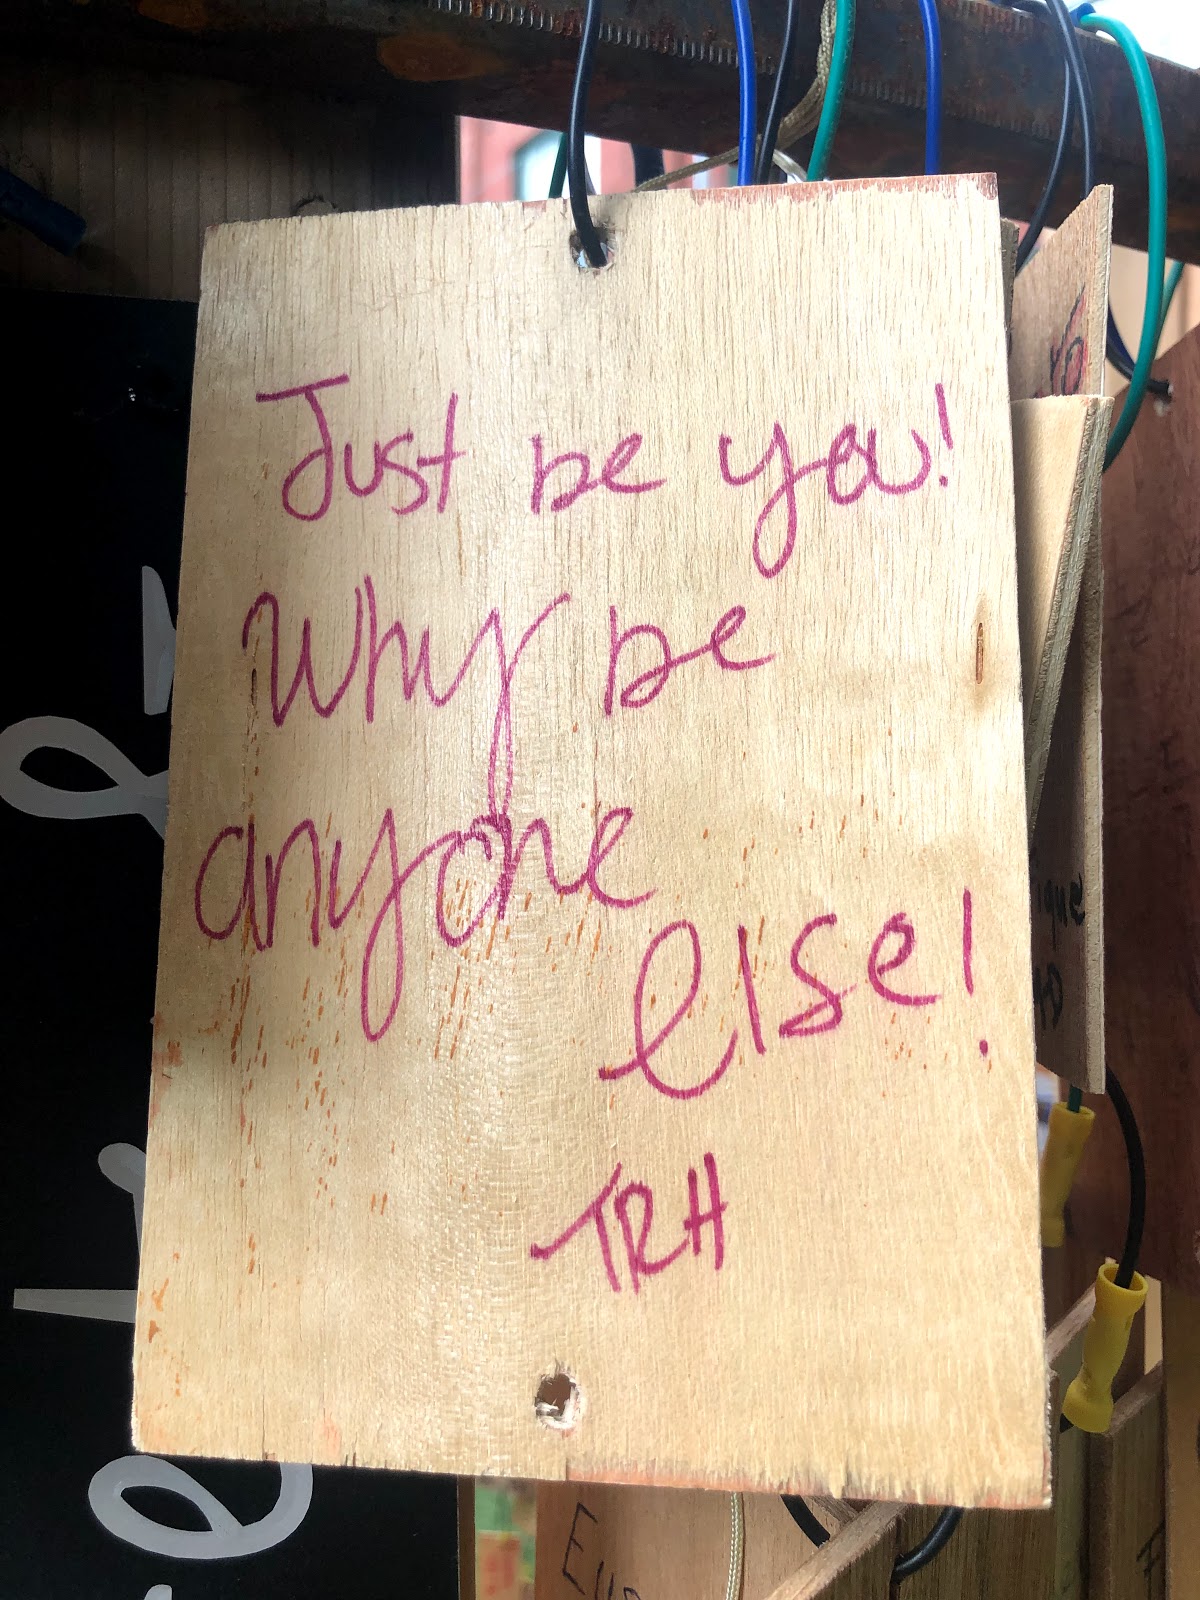 Just be you!
Why be
anyone
else!
TRH